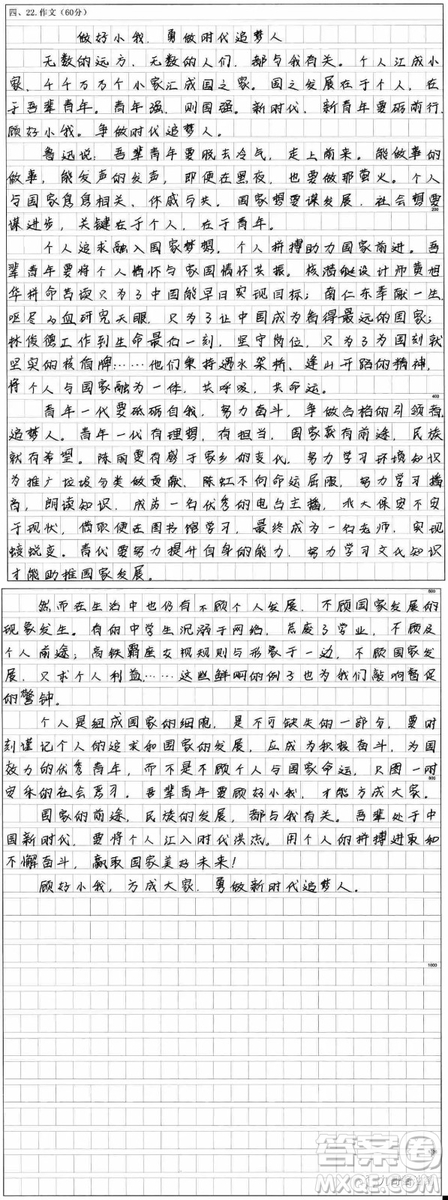 四、22.作文(60分)
做好小我，勇做时代追梦人
无数的远方，无数的人们，都与我有关。个人汇成小
家，千千万万个小家汇成国之家。国之发展在于个人，在
于吾辈青年。青年强，则国强。新时代，新青年要砥砺前行，
顾好小我。争做时代追梦人。
鲁迅说：吾辈青年要脱去冷气，走上前来。能做事的
做事，能发声的发声，即便在黑夜，也要做那萤火。个人
与国家息息相关、休戚与共。国家想要谋发展，社会想要
谋进步，关键在于个人，在于青年。
个人追求融入国家梦想，个人拼搏助力国家前进。吾
辈青年要将个人情怀与家国情怀共振。核潜艇设计师黄旭
华拼命只为了中国能早日实现目标；南仁东奉献一生
呕尽心血研究天眼，只为了让中国成为看得最远的国家；
林俊德工作到生命最后一刻，坚守岗位，只为了为国刻就
坚实的核盾牌……他们秉持遇水架桥、逢山开路的精神，
将个人与国家融为一体，共呼吸，共命运。
青年一代要砥砺自我，努力奋斗，争做合格的引领者
追梦人。青年一代有理想，有担当，国家就有前途，民族
就有希望。陈国更有感于家乡的变化，努力学习环境知识
为推广垃圾分类做贡献。陈虹不向命运屈服，努力学习播
音，朗读知识，成为一名优秀的电台主播，大保安不安
于现状，借取便在图书馆学习，最终成为一名老师，实现
蜕变。青代要努力提升自身的能力，努力学习文化知识
才能助推国家发展。
然而在生活中也仍有不顾个人发展，不顾国家发展的
现象发生。有的中学生沉溺于网络，荒废了学业，不顾及
个人前途；高铁霸座女视规则与形象于一边，不顾国家发
展，只求个人利益……这些鲜明的例子也为我们敲响警促
的警钟。
个人是组成国家的细胞，是不可缺失的一部分，要时
刻谨记个人的追求和国家的发展，应成为积极奋斗，为国
效力的优秀青年，而不是不顾个人与国家命运，只图一时
安乐的社会。吾辈青年要顾好小我，才能方成大家。
国家的前途，民族的发展，都与我有关。吾辈处于中
国新时代，要将个人汇入时代洪流。用个人的拼搏进取和
不懈奋斗，赢取国家美好未来！
顾好小我，方成大家，勇做新时代追梦人。
200
400
600
800
1000
答案圈